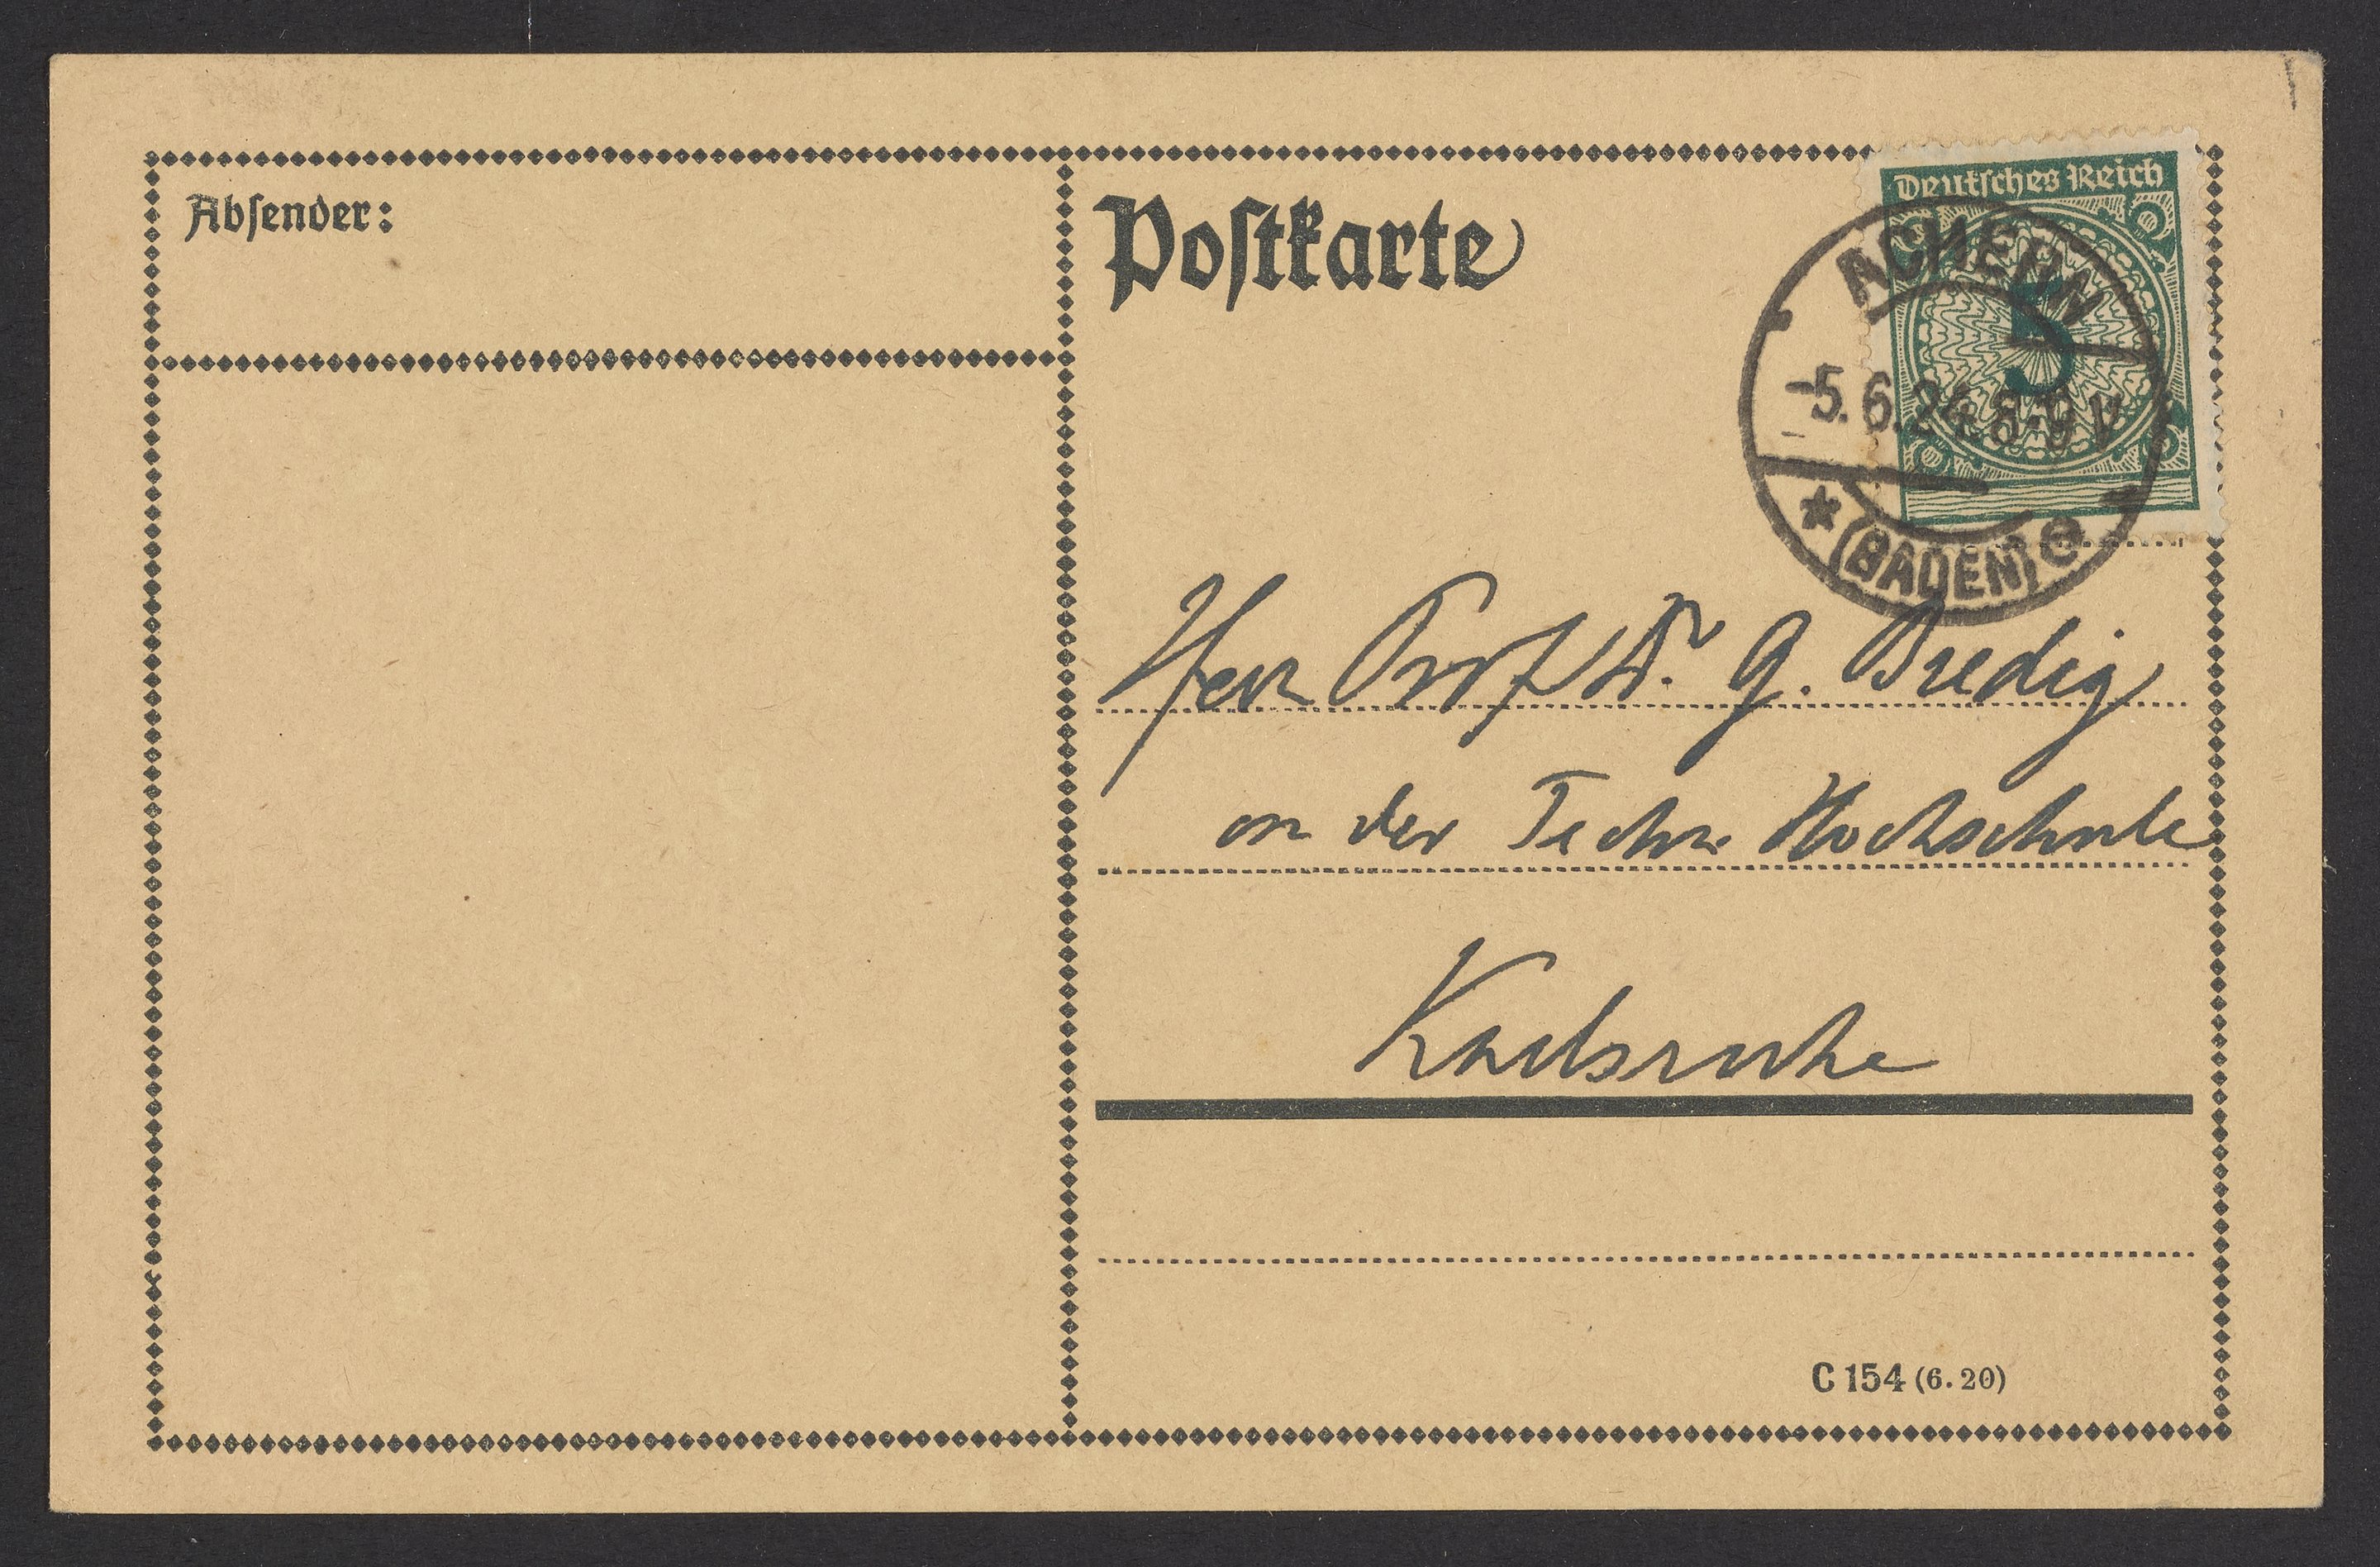 Absender:
Postkarte
Deutsches Reich
5
ACHERN
-5.6.24.8-9V
* (BADEN) e
Herr Prof Dr. G. Bredig
an der Techn. Hochschule
Karlsruhe
C 154 (6.20)